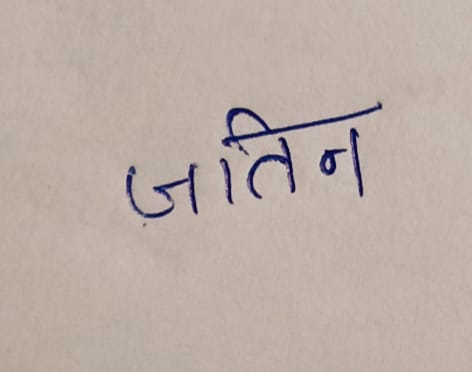 जातिन